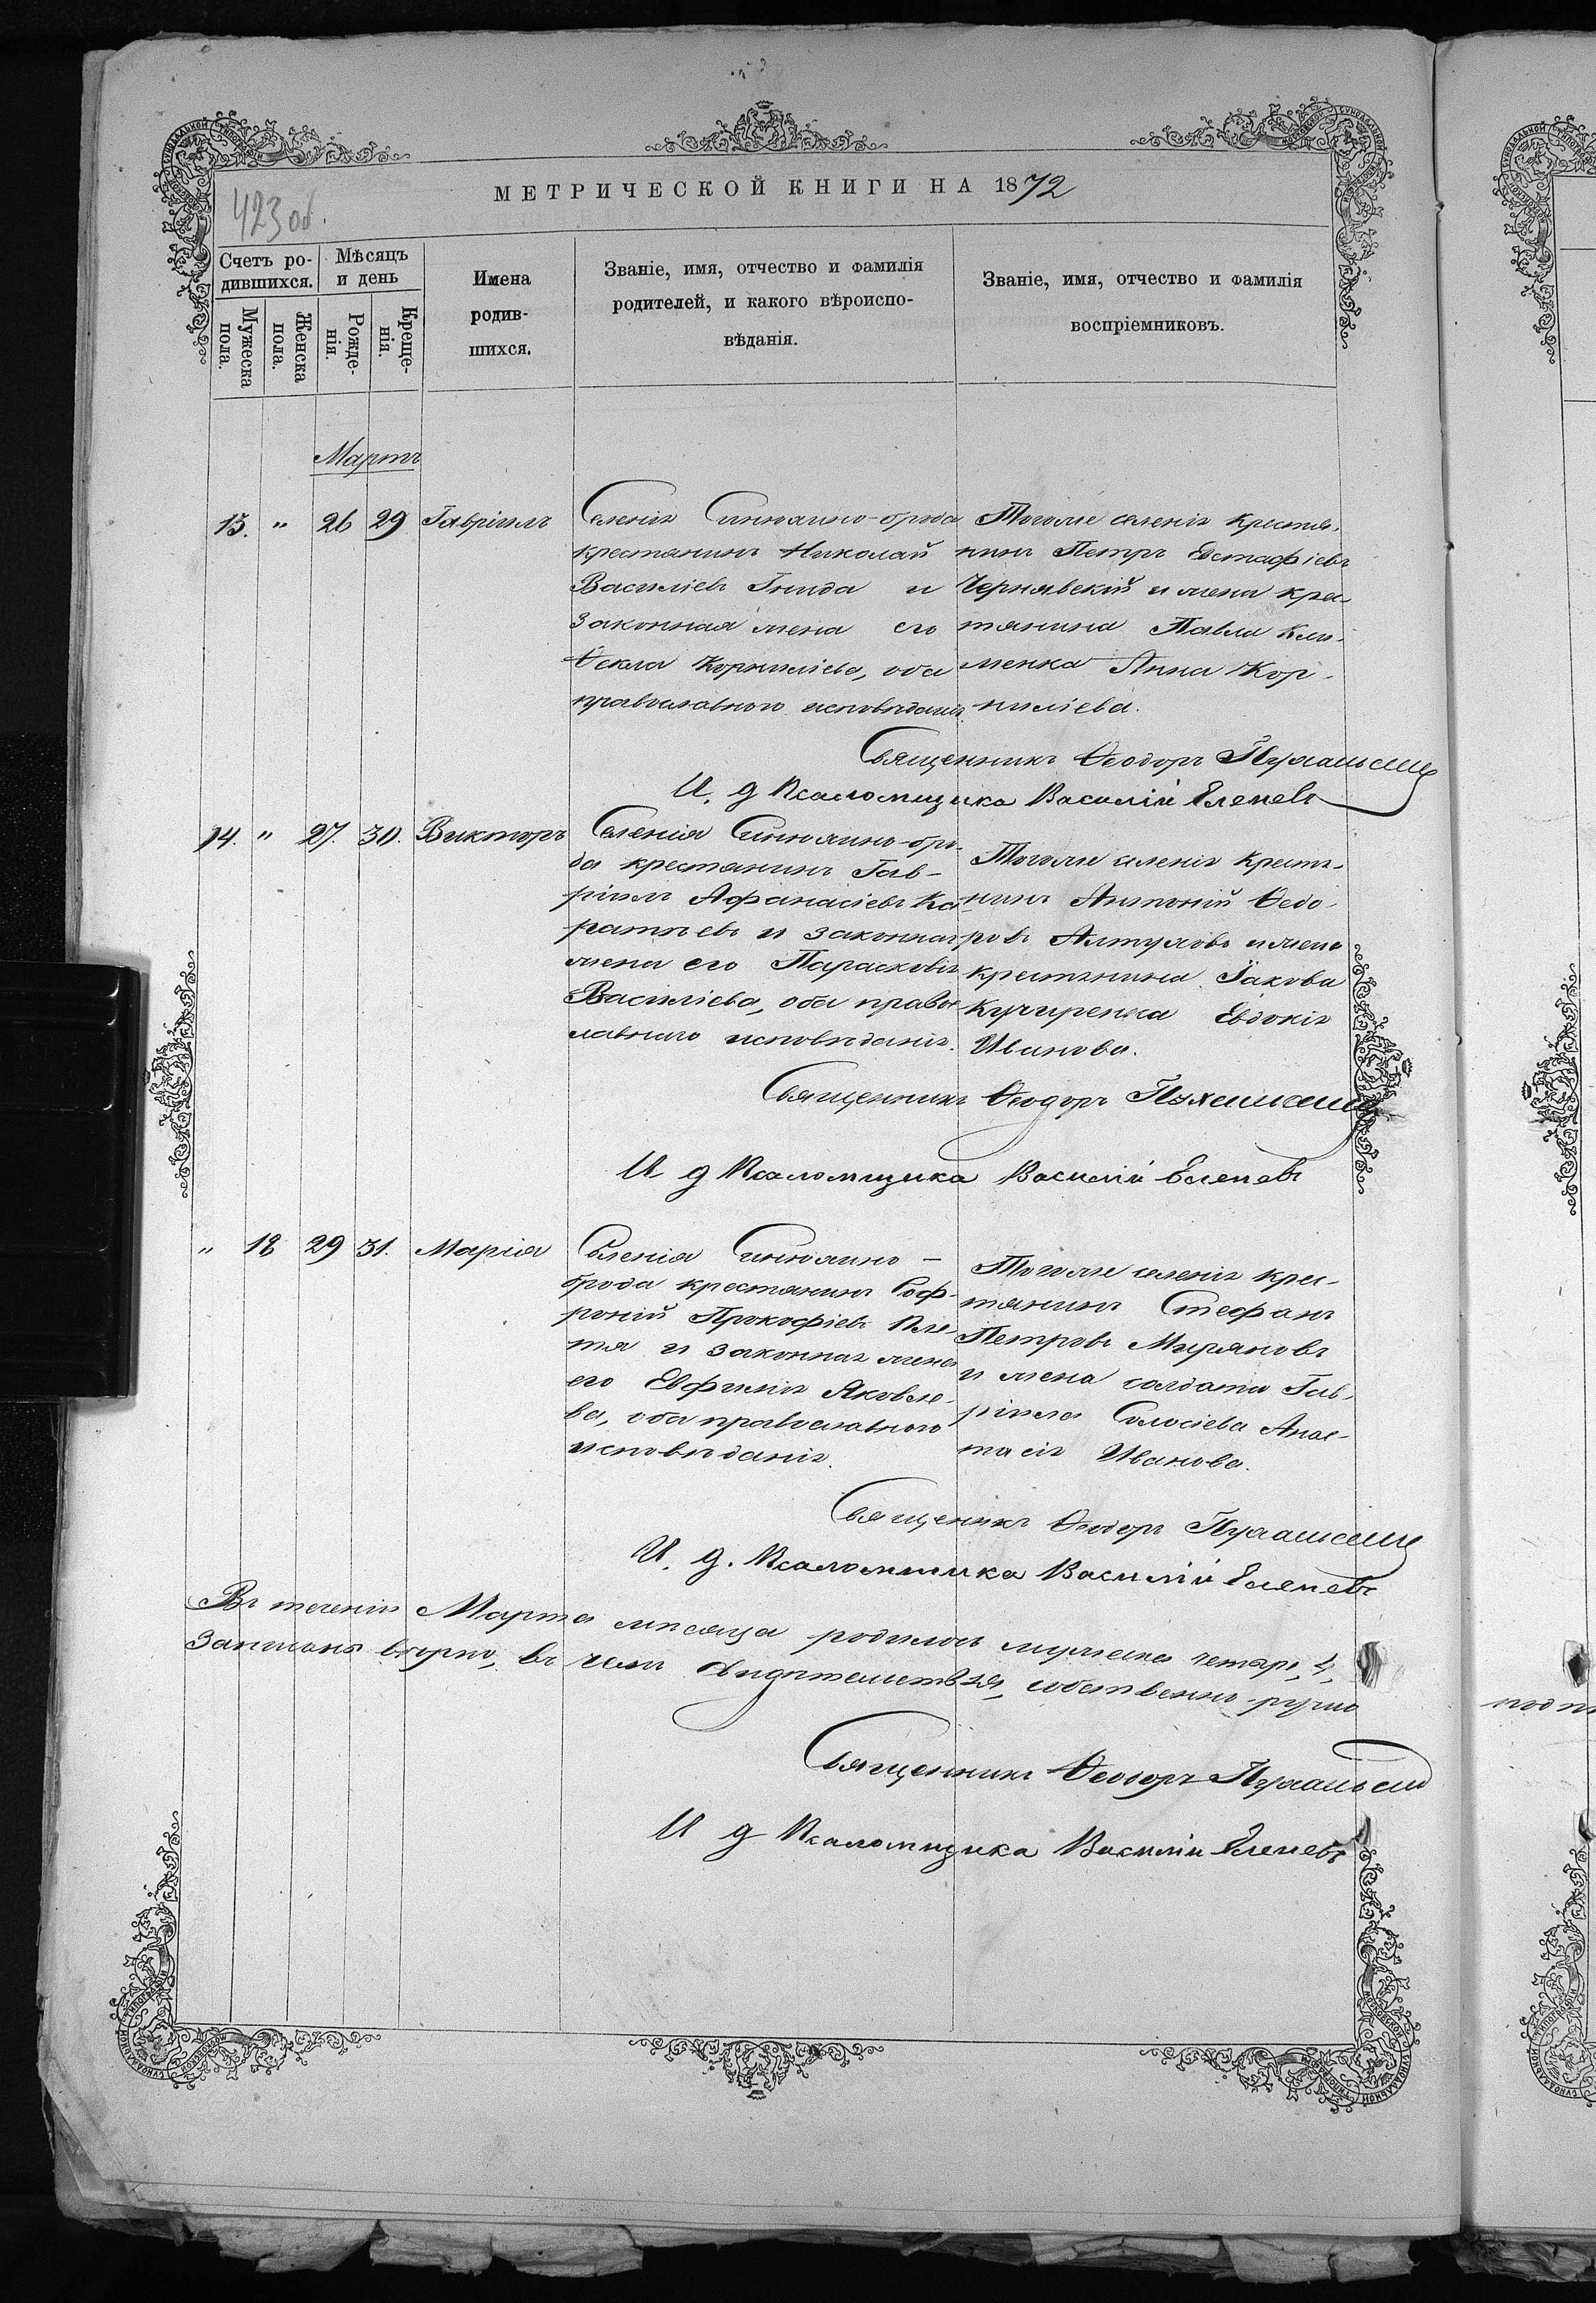 МЕТРИЧЕСКОЙ КНИГИ НА 1872
423 об.
Счетъ ро-
дившихся.
Мужеска
пола.
Женска
пола.
Мѣсяцъ
и день
Рожде-
нія.
Креще-
нія.
Имена
родив-
шихся.
Званіе, имя, отчество и фамилія
родителей, и какого вѣроиспо-
вѣданія.
Званіе, имя, отчество и фамилія
воспріемниковъ.
Мартъ
13. " 26 29 Гавріилъ
Селенія Синюхино-брода
крестянинъ Николай
Василіевъ Гнида и
законная жена его
Ѳекла Корниліева, оба
православного исповѣданія
Тогоже селенія крестя-
нинъ Петръ Евстафіевъ
Чернявскій и жена крес-
тянина Павла Кли-
менка Анна Кор-
ниліева.
Священникъ Ѳеодоръ
И. д Псаломщика Василій Еленевъ
14. " 27. 30. Викторъ
Селенія Синюхино-бро-
да крестянинъ Гав-
ріилъ Афанасіевъ Ка-
ратѣевъ и законная
жена его Параскевія
Василіева, оба правос-
лавного исповѣданія.
Тогоже селенія крестя-
нинъ Антоній Ѳедо-
ровъ Алтуховъ и жена
крестянина Іакова
Кучуренка Евдокія
Иванова.
Священникъ Ѳеодоръ
И д Псаломщика Василій Еленевъ
" 12 29 31. Марія
Селенія Синюхино-
брода крестянинъ Соф-
роній Прокофіевъ Пле-
тя и законная жена
его Евфимія Яковле-
ва, оба православного
исповѣданія.
Тогоже селенія крес-
тянинъ Стефанъ
Петровъ Миряновъ
и жена солдата Гав-
ріила Соловіева Анас-
тасія Иванова.
Священикъ Ѳеодоръ
И. д. Псаломщика Василій Еленевъ
Въ теченіи Марта мѣсяца родилось мужеска четыре, 4,
записанъ вѣрно, въ чемъ свидѣтельствуя, собственно-ручно
Священникъ Ѳеодоръ
И д Псаломщика Василій Еленевъ